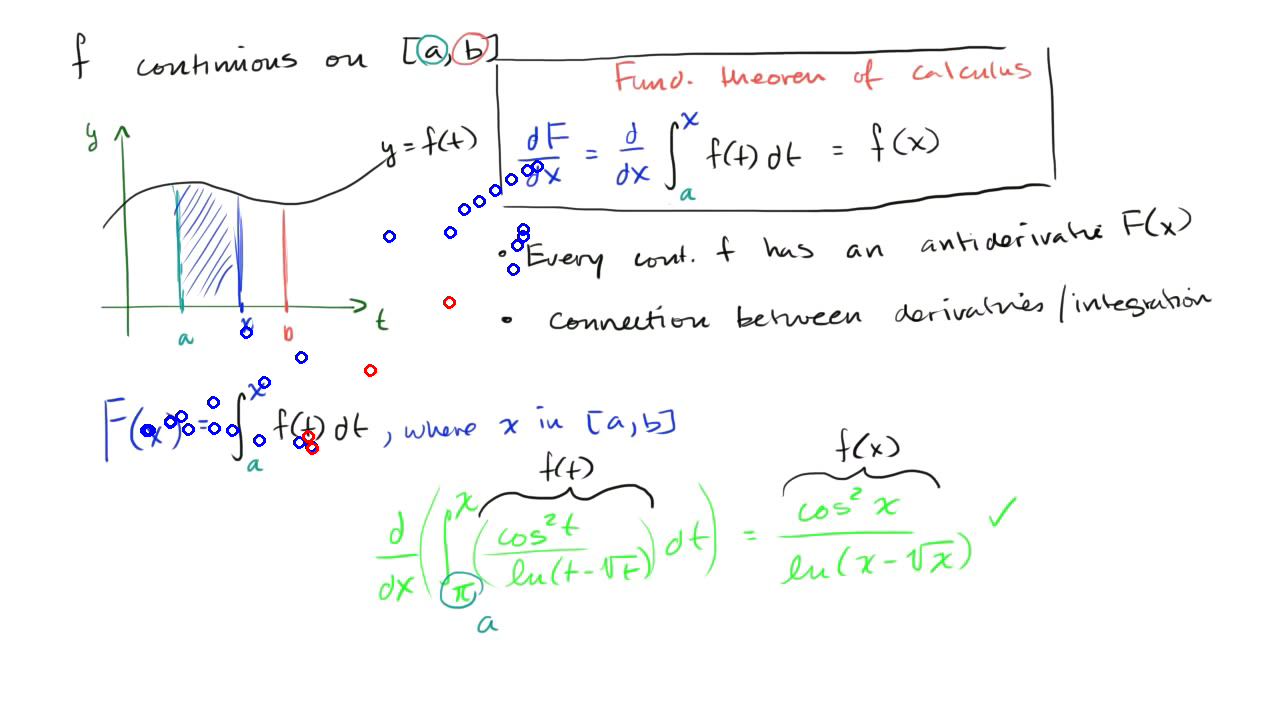 f continuous on [a, b]
Fund. theorem of calculus
dF/dx = d/dx ∫_a^x f(t) dt = f(x)
y
y = f(t)
• Every cont. f has an antiderivative F(x)
• connection between derivatives / integration
a x b t
F(x) = ∫_a^x f(t) dt , where x in [a, b]
f(t) f(x)
d/dx ( ∫_π^x ( cos²t / ln(t-√t) ) dt ) = cos²x / ln(x-√x) ✓
a